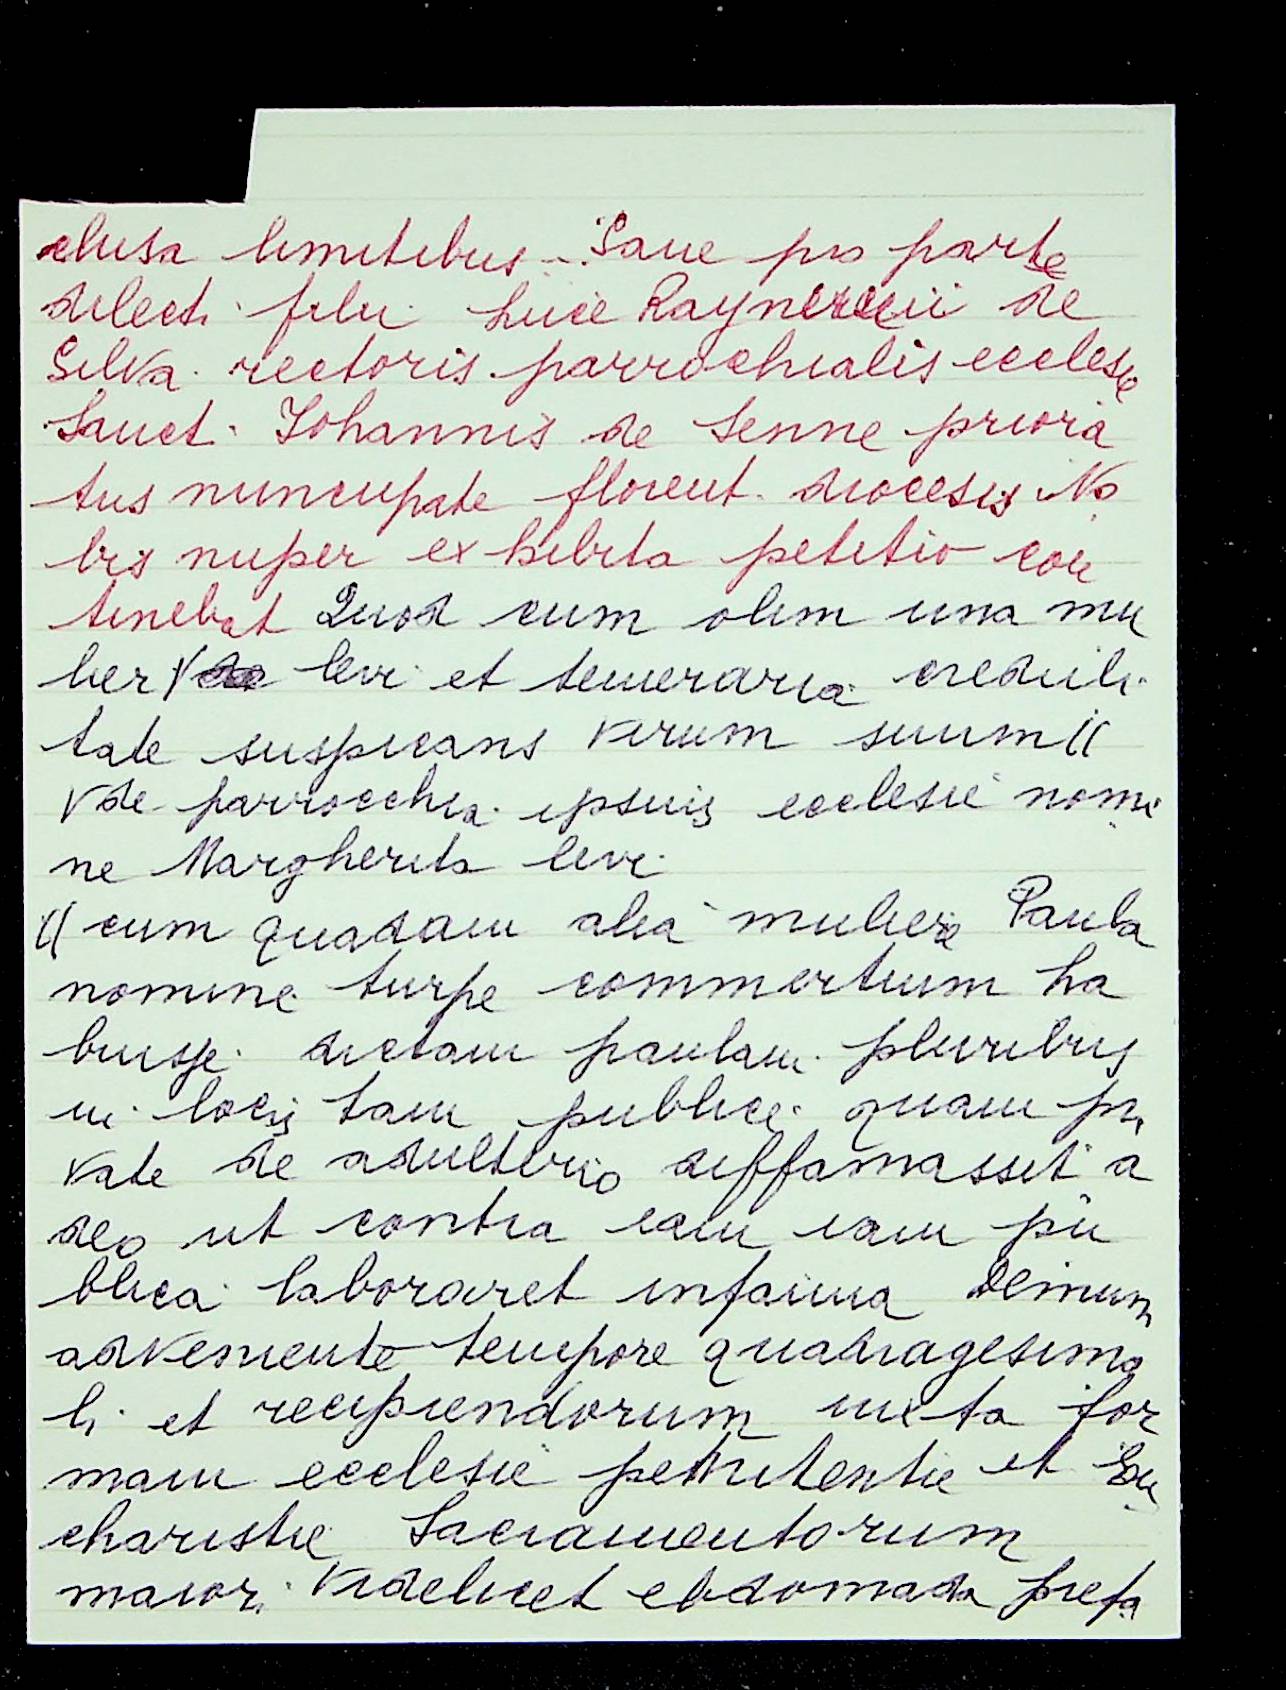 clusa limitibus ... Sane pro parte
dilecti filii Luce Raynerii de
Silva rectoris parrochialis ecclesie
Sancti Iohannis de Senne priora
tus nuncupate florent. diocesis No
bis nuper exhibita petitio con
tinebat Quod cum olim una mu
lier √ levi et temeraria creduli
tate suspicans virum suum //
√ de parrocchia ipsius ecclesie nomi
ne Margherita levi
// cum quadam alia muliere Paula
nomine turpe commertium ha
buisse dictam paulam pluribus
in locis tam publice quam pri
vate de adulterio diffamassit a
deo ut contra eam iam pu
blica laboraret infamia Demum
adveniente tempore quadragesima
li et recipiendorum iuxta for
mam ecclesie penitentie et Eu
charistie Sacramentorum
maiori videlicet ebdomada prefa